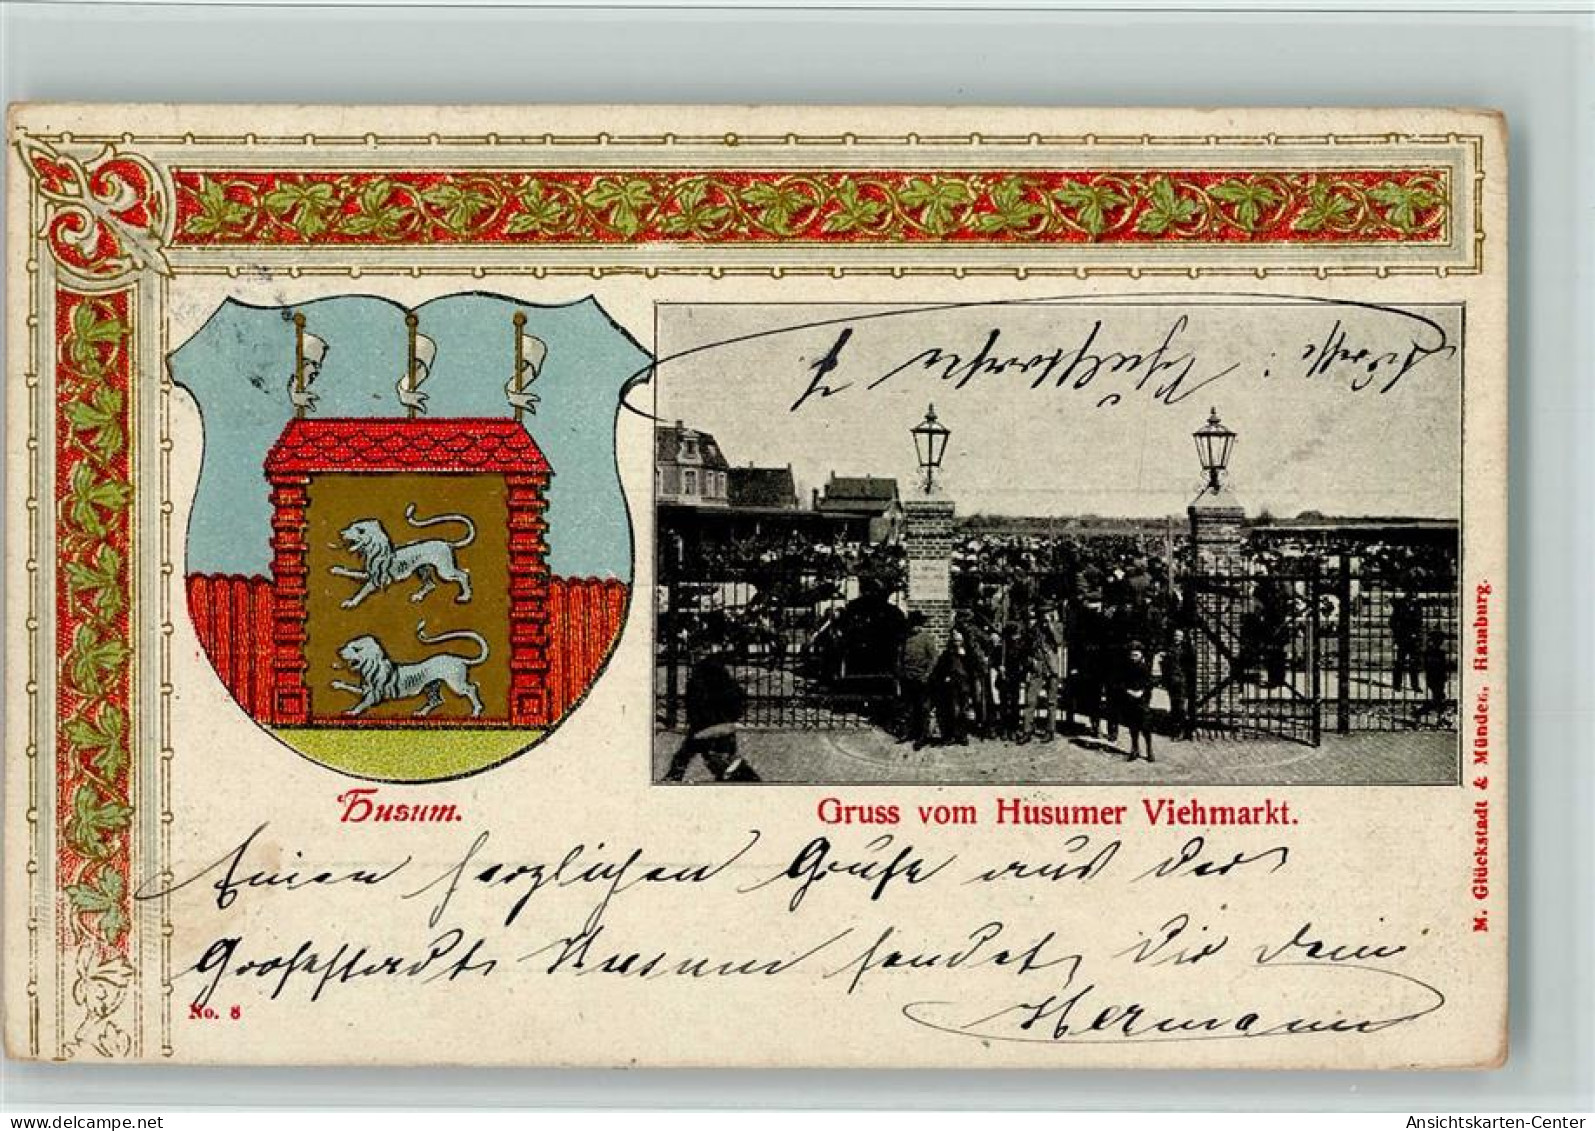 Adresse:
Husum.
Gruss vom Husumer Viehmarkt.
M. Glückstadt & Münden, Hamburg.
Einen herzlichen Gruß aus der
Großstadt Husum sendet Dir Dein
Hermann
No. 8
AK-Ansichtskarten.de/ak
Ansichtskarten-Center